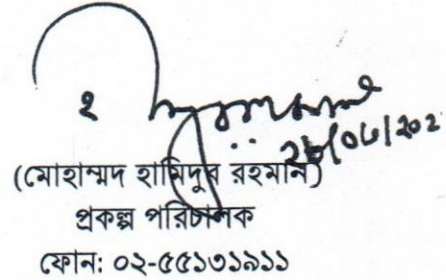 (মোহাম্মদ হামিদুর রহমান)
প্রকল্প পরিচালক
ফোন: ০২-৫৫১৩১৯১১